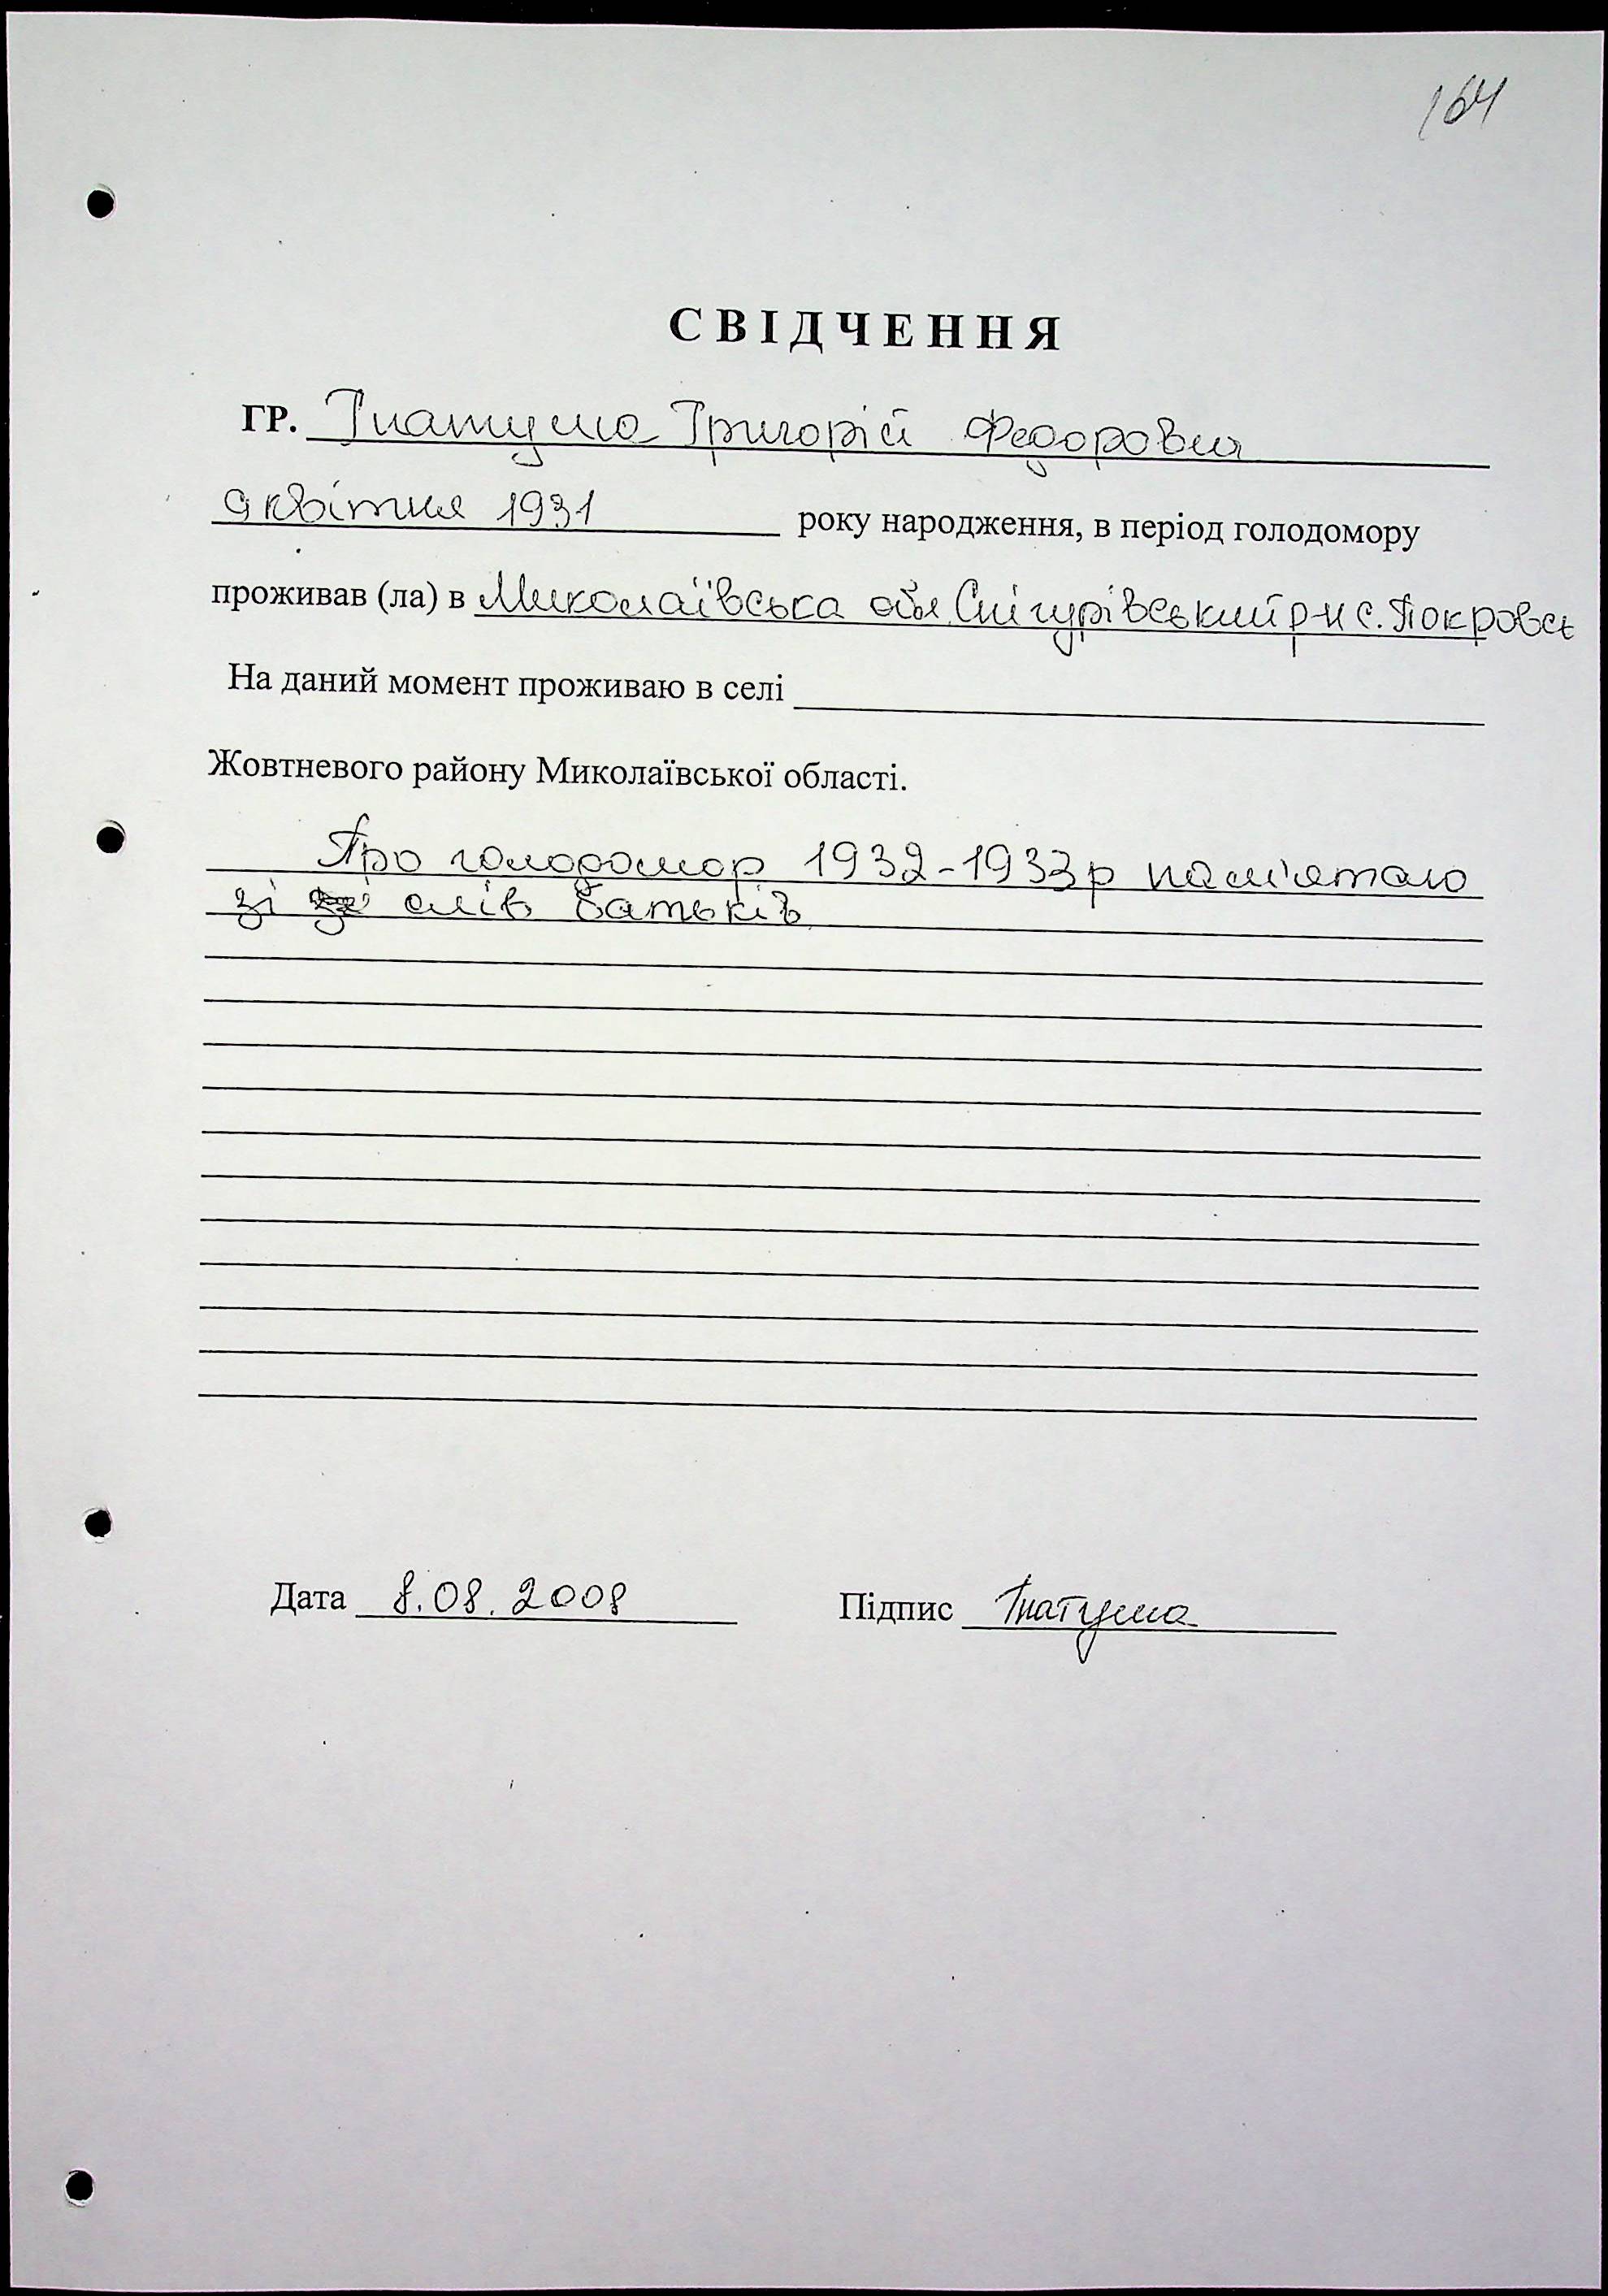 164
СВІДЧЕННЯ
ГР. Гнатуша Григорій Федорович
9 квітня 1931 року народження, в період голодомору
проживав (ла) в Миколаївська обл Снігурівський р-н с. Покровсь
На даний момент проживаю в селі
Жовтневого району Миколаївської області.
Про голодомор 1932-1933р пам'ятаю
зі слів батьків
Дата 8.08.2008 Підпис Гнатуша